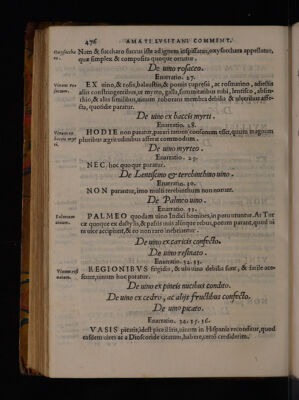 476 AMATI LVSITANI COMMENT.
Nam & saccharo succus iste ad ignem inspissatur, oxysacchara appellatur,
quæ simplex & composita quoque oritur.
De uino rosaceo.
Enarratio. 27.
EX uino, & rosis, balaustijs, & pomis cupressi, ac rosmarino, adiectis
alijs constringentibus, ut myrto,
thio, & alijs similibus, uinum roborans membra debilia &
cta, quotidie paratur.
De uino ex baccis myrti.
Enarratio. 28.
HODIE non paratur, parari tamen consonum esset, quum magnum
pluribus ægritudinibus afferat commodum.
De uino myrteo.
Enarratio. 29.
NEC hoc quoque paratur.
De Lentiscino & terebinthino uino.
Enarratio. 30.
NON parantur, imo nulli terebinthum non norunt.
De Palmeo uino.
Enarratio. 31.
PALMEO quodam uino Indici homines, in potu utuntur. At Tur
cæ quoque ex dactylis, & passis uuis alijsque rebus, potum parant, quod ui
ni uice accipiunt, & eo non raro inebriantur.
De uino ex caricis confecto.
De uino resinato.
Enarratio. 32. 33.
REGIONIBVS frigidis, & ubi uina debilia sunt, & facile
uinum hoc paratur.
De uino ex pineis nucibus condito.
De uino ex cedro, ac alijs fructibus confecto.
De uino picato.
Enarratio. 34. 35. 36.
VASIS picatis, idest pice illitis, uinum in Hispania reconditur, quod
easdem uires ac a Dioscoride citatum, habere, certò crediderim.